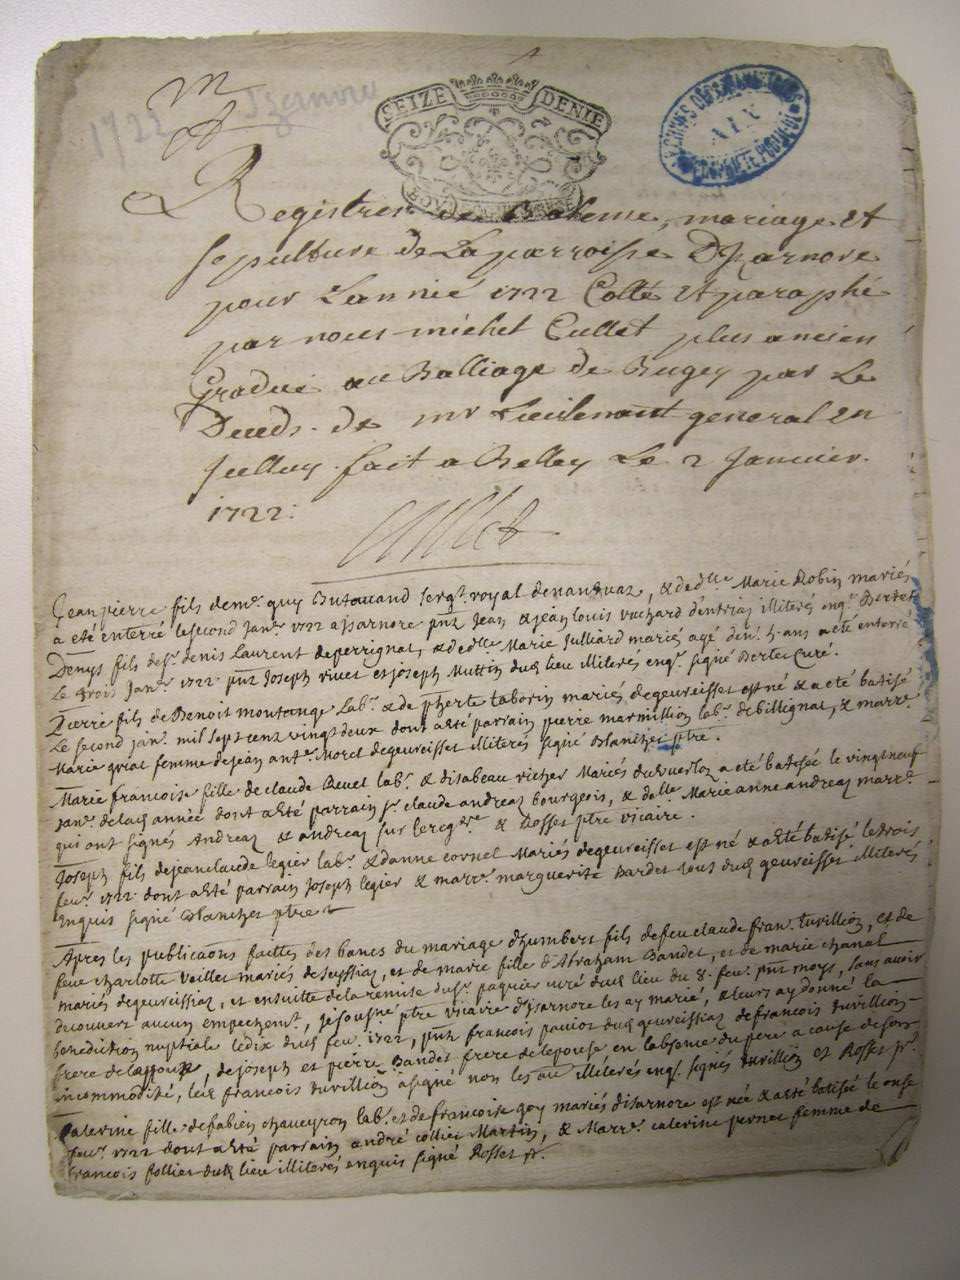 1722 Izernore
SEIZE DENIE
ARCHIVES DEPARTEMENTALES
AIN
Registres de Bateme, mariage et
sepulture de La parroisse D'Izarnore
pour L'anneé 1722 Cotté et paraphé
par nous michel Cullet plus ancien
Gradué au Balliage de Bugey par Le
Deceds de mr Lieutenant general en
Icelluy fait a Belley Le 2 Janvier
1722:
Cullet
Jean pierre fils de mr. guy sergt. royal de nantuaz, & de dlle Marie Robin mariés
a eté enterré le second janr. 1722 a Isarnore pnts Jean & jean louis vuchard d'entriaz illiterés enqs. Bertet
Denys fils de sr. denis Laurent de perrignat, & de dlle Marie Julliard mariés agé d'enn. 4. ans a eté enterré
Le trois janr. 1722. pnts Joseph rivet et joseph Muttin dud. lieu illiterés enqs. signé Bertet Curé.
Pierre fils de Benoit montange Labr. & de taborin mariés de geureisset est né & a eté batisé
Le second janr. mil sept cent vingt deux dont a eté parrain pierre marmillion labr. de billignat, & marre.
Marie femme de jean ante. Morel de geureisset illiterés signé Blanchet ptre.
Marie françoise fille de claude Benet labr. & d'isabeau richer Mariés a eté batisée le vingt neuf
janr. de lad. année dont a eté parrain sr. claude andreaz bourgeois, & dlle. Marie anne andreaz marre.
qui ont signés Andreaz & andreaz sur & Rosset ptre vicaire.
Joseph fils de jean claude legier labr. & d'anne cornel Mariés de geureisset est né & a eté batisé le trois
fevr. 1722 dont a eté parrain Joseph legier & marre. marguerite Bardet tous dud. geureisset illiterés
enquis signé Blanchet ptre
Apres les publicaons faittes des bancs du mariage d'humbert fils de feu claude fran. turillion, et de
feue charlotte veillet mariés de seyssiaz, et de marie fille d'Abraham Baudet, et de marie chanal
mariés de geureissiaz, et ensuitte de la remise du sr. paquier curé dud. lieu du 8. fevr. pnt moys, sans avoir
decouvert aucun empechemt, je sousné. ptre vicaire d'isarnore les ay marié, & leurs ay donné la
benediction nuptiale le dix dud. fevr. 1722, pnts francois paviot dud. geureissiaz de francois turillion
frere de l'epoux, de joseph et pierre Baudet frere de lepouse en labsence du pere a cause de son
incommodité, led. francois turillion a signé non les aus. illiterés enqs. signés turillion et Rosset pr.
Caterine fille de fabien chaveyron labr. et de francoise goy mariés d'isarnore est née & a eté batisée le onse
fevr. 1722 dont a eté parrain andré collier Martin, & Marre. caterine pernet femme de
francois follier dud. lieu illiterés enquis signé Rosset pr.